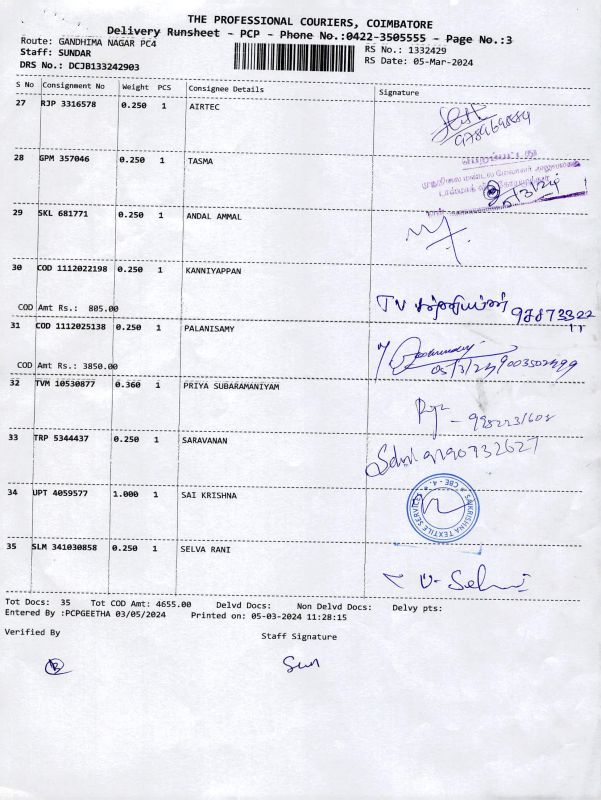 THE PROFESSIONAL COURIERS, COIMBATORE
Delivery Runsheet - PCP - Phone No.:0422-3505555 - Page No.:3
Route: GANDHIMA NAGAR PC4 RS No.: 1332429
Staff: SUNDAR RS Date: 05-Mar-2024
DRS No.: DCJB133242903
S No Consignment No Weight PCS Consignee Details Signature
27 RJP 3316578 0.250 1 AIRTEC
28 GPM 357046 0.250 1 TASMA
29 SKL 681771 0.250 1 ANDAL AMMAL
30 COD 1112022198 0.250 1 KANNIYAPPAN
COD Amt Rs.: 805.00
31 COD 1112025138 0.250 1 PALANISAMY
COD Amt Rs.: 3850.00
05/3/24 9003502499
32 TVM 10530877 0.360 1 PRIYA SUBARAMANIYAM
33 TRP 5344437 0.250 1 SARAVANAN
9190732627
34 UPT 4059577 1.000 1 SAI KRISHNA
SAIKRISHNA TEXTILE SERVICE CBE - 4.
35 SLM 341030858 0.250 1 SELVA RANI
Tot Docs: 35 Tot COD Amt: 4655.00 Delvd Docs: Non Delvd Docs: Delvy pts:
Entered By :PCPGEETHA 03/05/2024 Printed on: 05-03-2024 11:28:15
Verified By Staff Signature
Sun